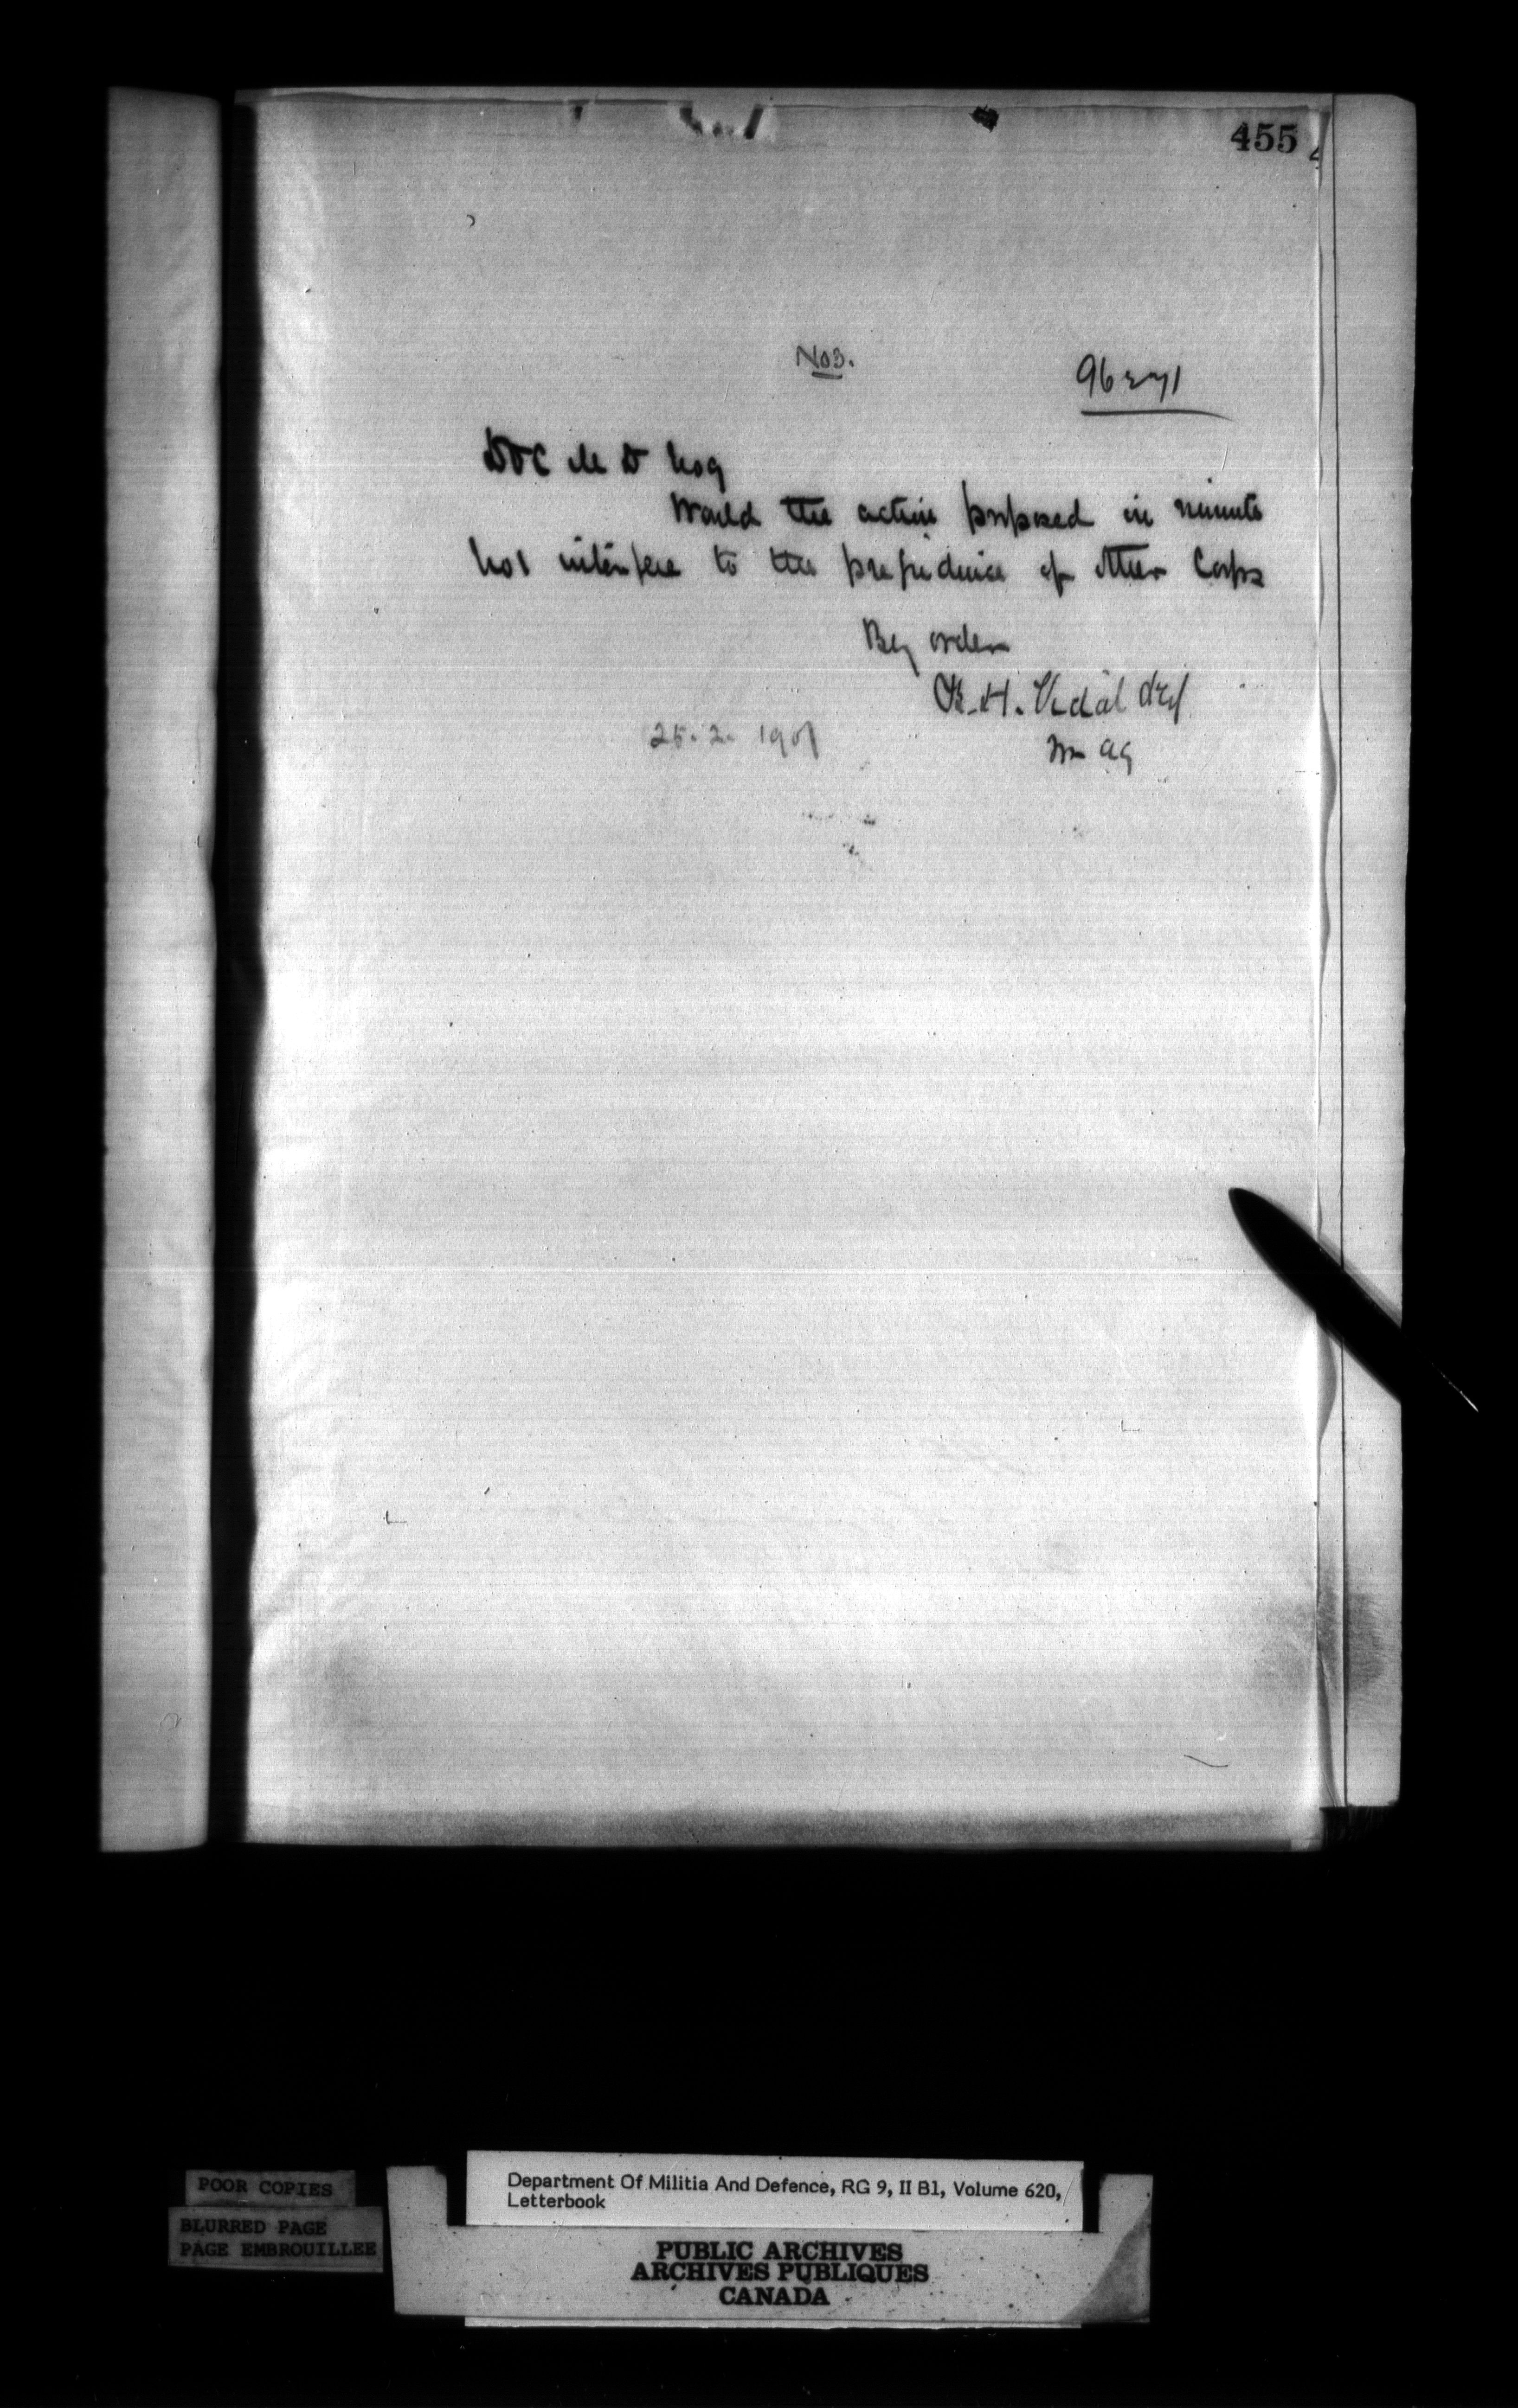 455
No 3.
96271
DOC M D No 9
Would the action proposed in minute
not interfere to the prejudice of other Corps
By order
B. H. Vidal
for AG
25. 2. 1901
POOR COPIES
BLURRED PAGE
PAGE EMBROUILLEE
Department Of Militia And Defence, RG 9, II B1, Volume 620,
Letterbook
PUBLIC ARCHIVES
ARCHIVES PUBLIQUES
CANADA